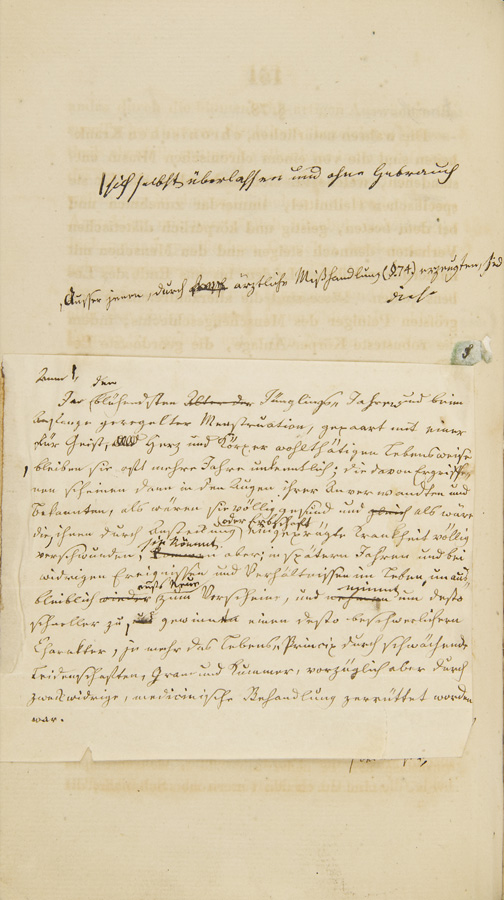 sich selbst überlassen und ohne Gebrauch
Ausser jenen, durch ärztliche Mißhandlung (§.74) erzeugten, sind
dieß
8
Anm. 1. den
In blühendsten Jünglings-Jahren und beim
Anfange geregelter Menstruation, gepaart mit einer
für Geist, Herz und Körper wohlthätigen Lebensweise
bleiben sie oft mehre Jahre unkenntlich; die davon Ergriffe-
nen scheinen dann in den Augen ihrer Anverwandten und
Bekannten, als wären sie völlig gesund und gleich als wäre
die ihnen durch Ansteckung oder Erbschaft eingeprägte Krankheit völlig
verschwunden; sie kömmt aber, in spätern Jahren und bei
widrigen Ereignissen und Verhältnissen im Leben unaus-
bleiblich wieder aufs Neue zum Vorscheine, und nimmt um desto
schneller zu, gewinnt einen desto beschwerlichern
Charakter, je mehr das Lebens-Princip durch schwächende
Leidenschaften, Gram und Kummer, vorzüglich aber durch
zweckwidrige, medicinische Behandlung zerrüttet worden
war.